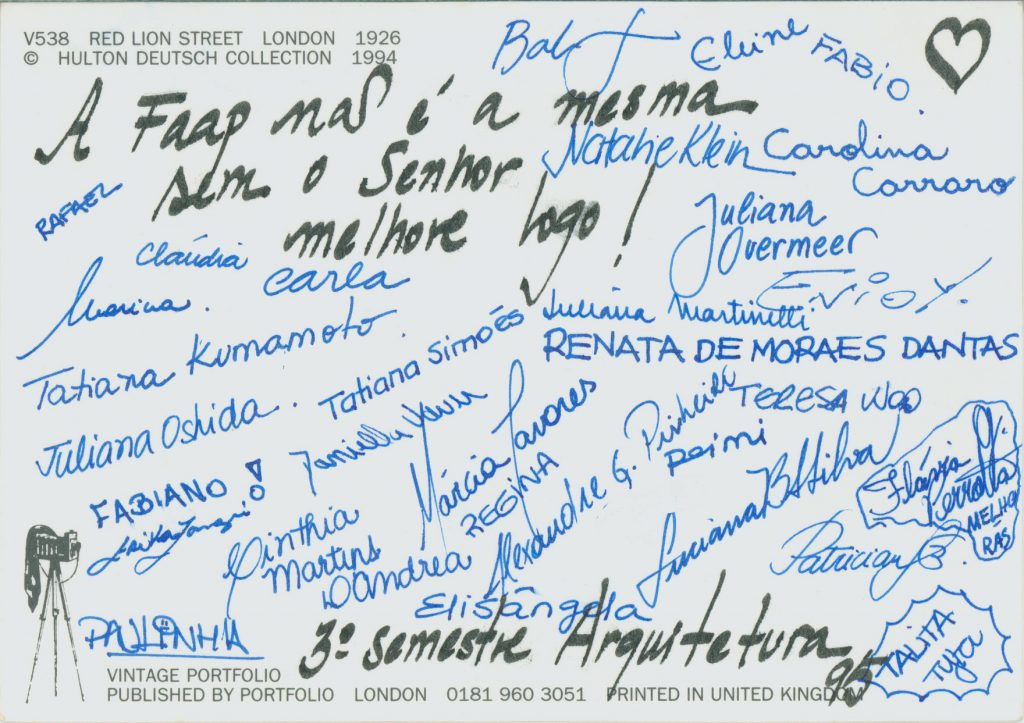 V538 RED LION STREET LONDON 1926
© HULTON DEUTSCH COLLECTION 1994
Eleine
FABIO.
A Faap não é a mesma
sem o Senhor
melhore logo!
Natalie Klein
Carolina
Carraro
RAFAEL
Juliana
Overmeer
Cláudia
Carla
Marina.
Juliana Martinelli
Tatiana Kumamoto.
Tatiana Simoés
RENATA DE MORAES DANTAS
Juliana Oshida.
TERESA
Márcia Tavores
REGINA
Alexandre G. Pinheiro
Reimi
Luciana B. Silva
Flávia
MELHO
RAS
FABIANO
Cinthia
Martins
D'Andrea
Elisângela
PAULINHA
3º semestre Arquitetura
95
TALITA
VINTAGE PORTFOLIO
PUBLISHED BY PORTFOLIO LONDON 0181 960 3051 PRINTED IN UNITED KINGDOM